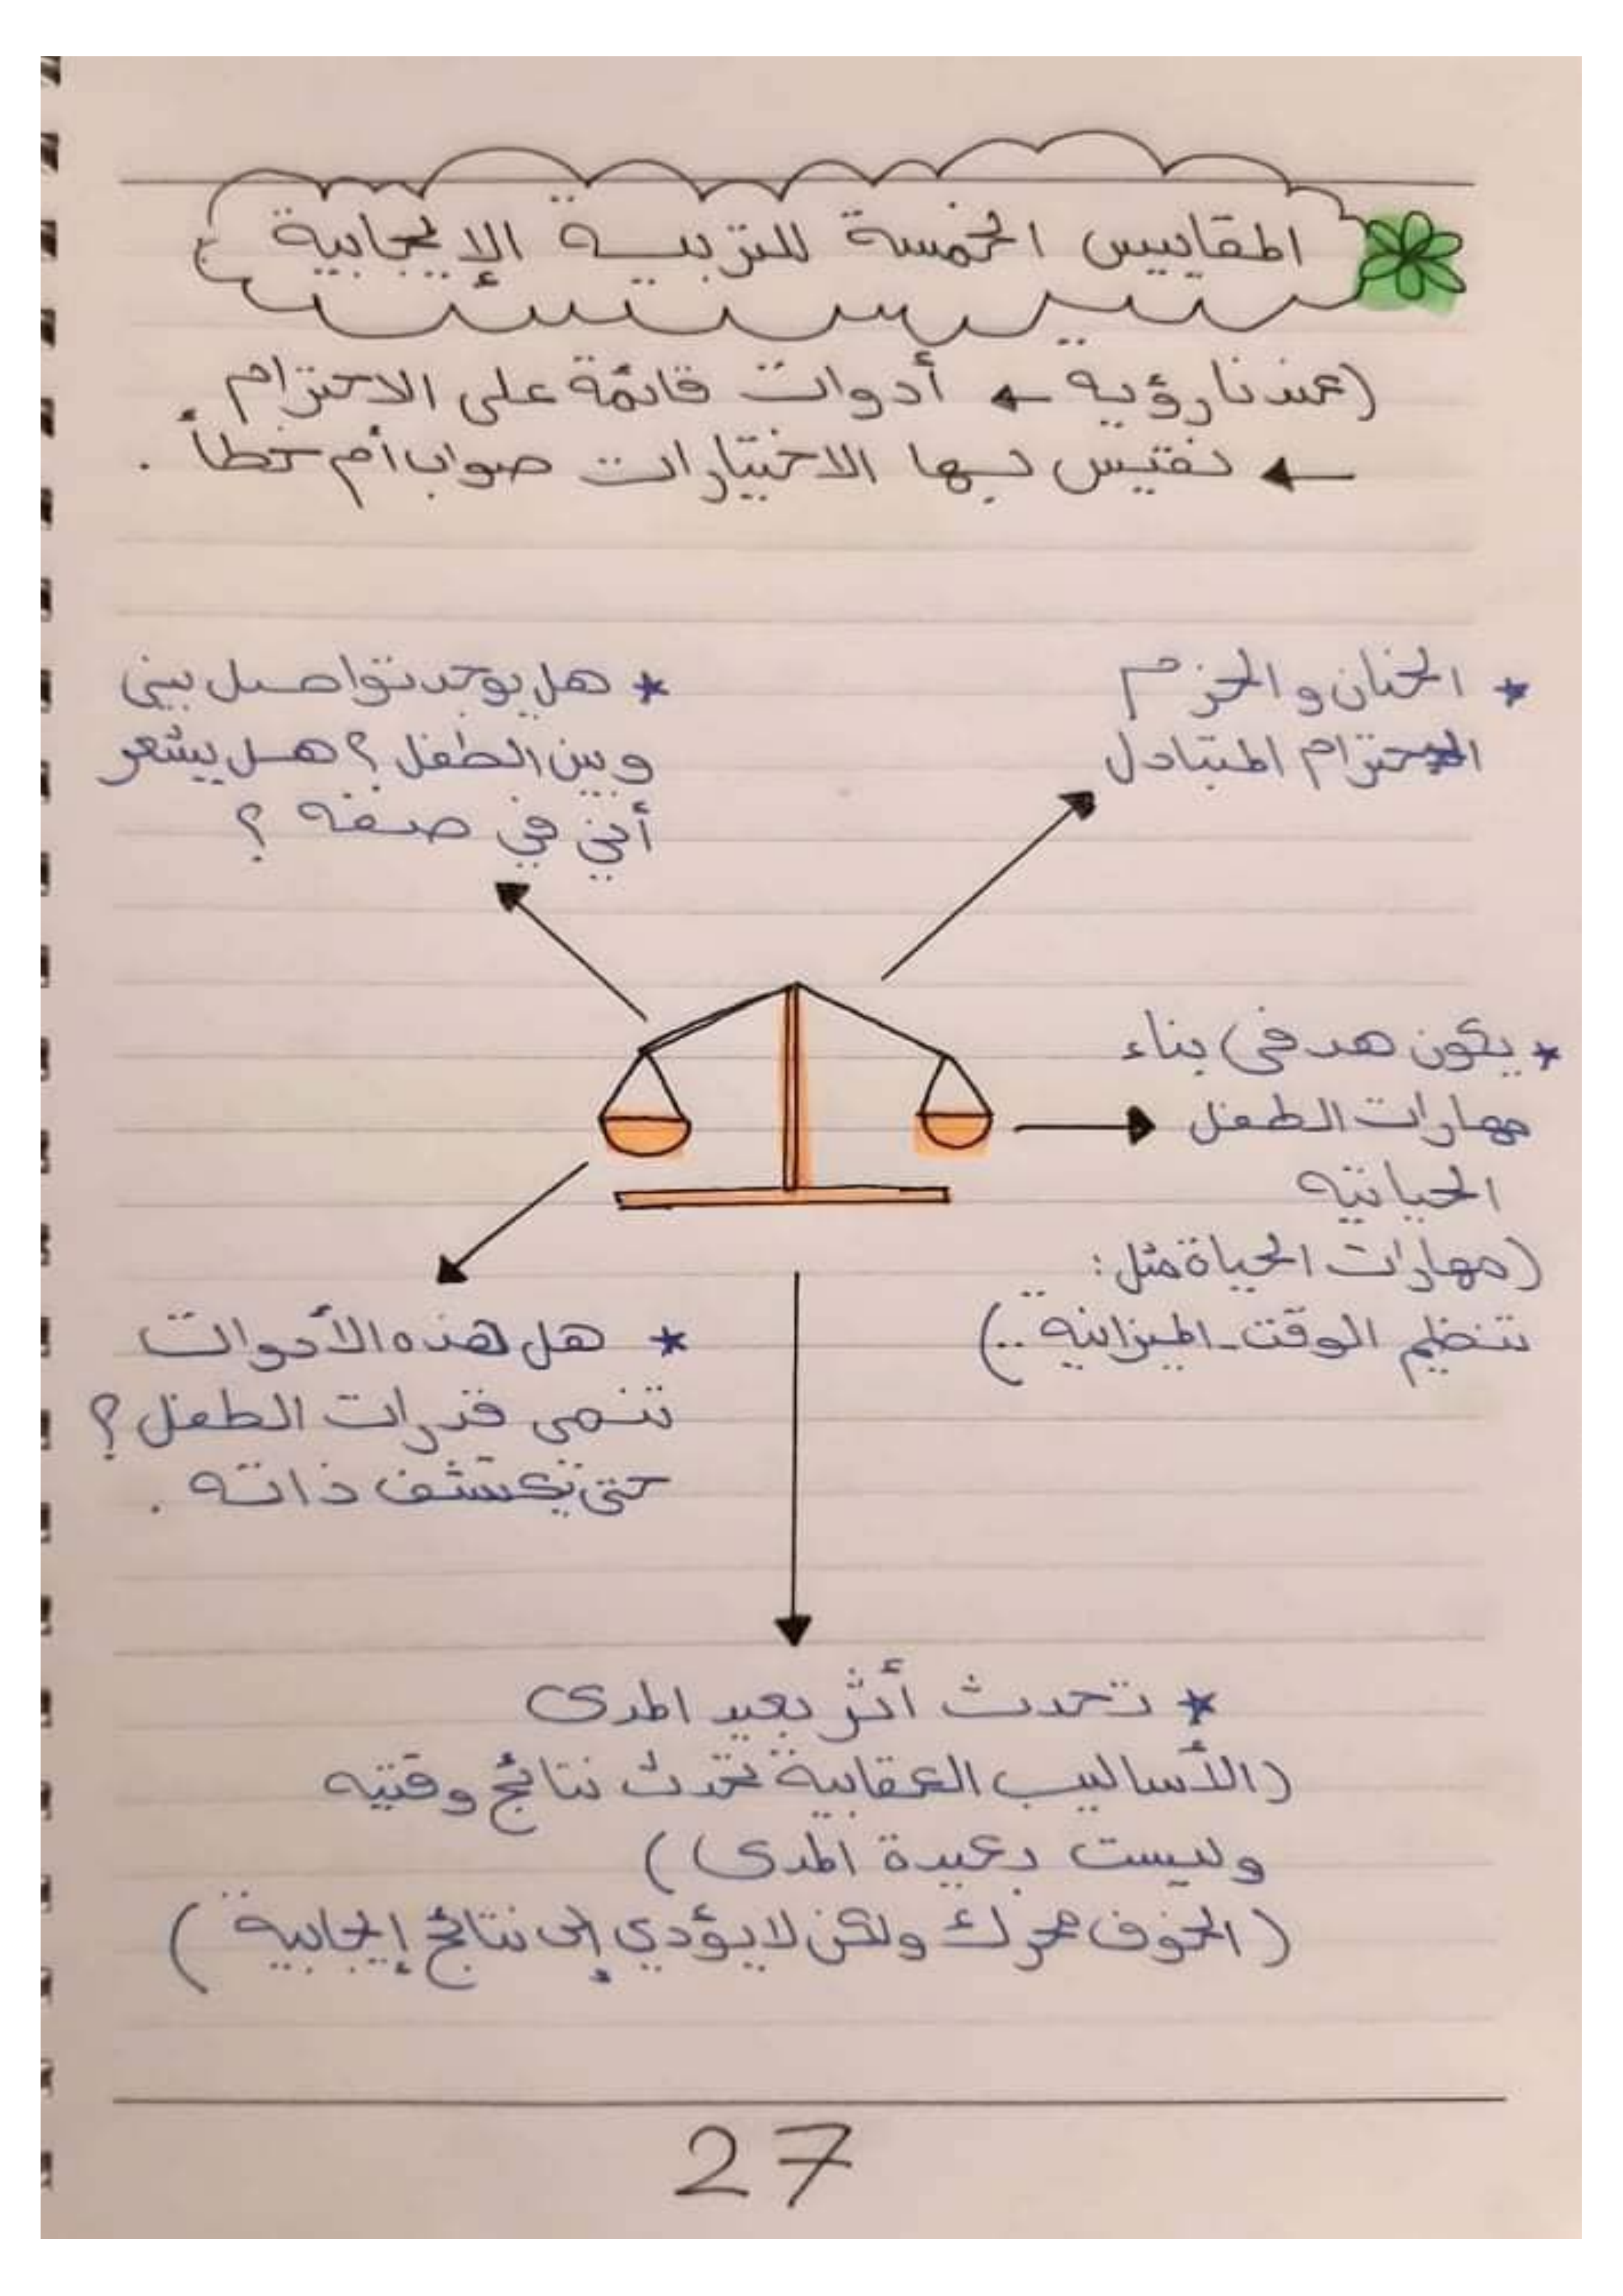 المقاييس الخمسة للتربية الإيجابية
(عندنا رؤية ← أدوات قائمة على الاحترام
← نقيس بها الاختيارات صواب أم خطأ .
* الحنان والحزم
الاحترام المتبادل
* هل يوجد تواصل بيني
وبين الطفل ؟ هل يشعر
أني في صفه ؟
* يكون هدفي بناء
مهارات الطفل
الحياتيه
(مهارات الحياة مثل :
تنظيم الوقت - الميزانية ..)
* هل هذه الأدوات
تنمى قدرات الطفل ؟
حتى يكتشف ذاته .
* تحدث أثر بعيد المدى
(الأساليب العقابية تحدث نتائج وقتيه
وليست بعيدة المدى)
(الخوف محرك ولكن لا يؤدي إلى نتائج إيجابية)
27